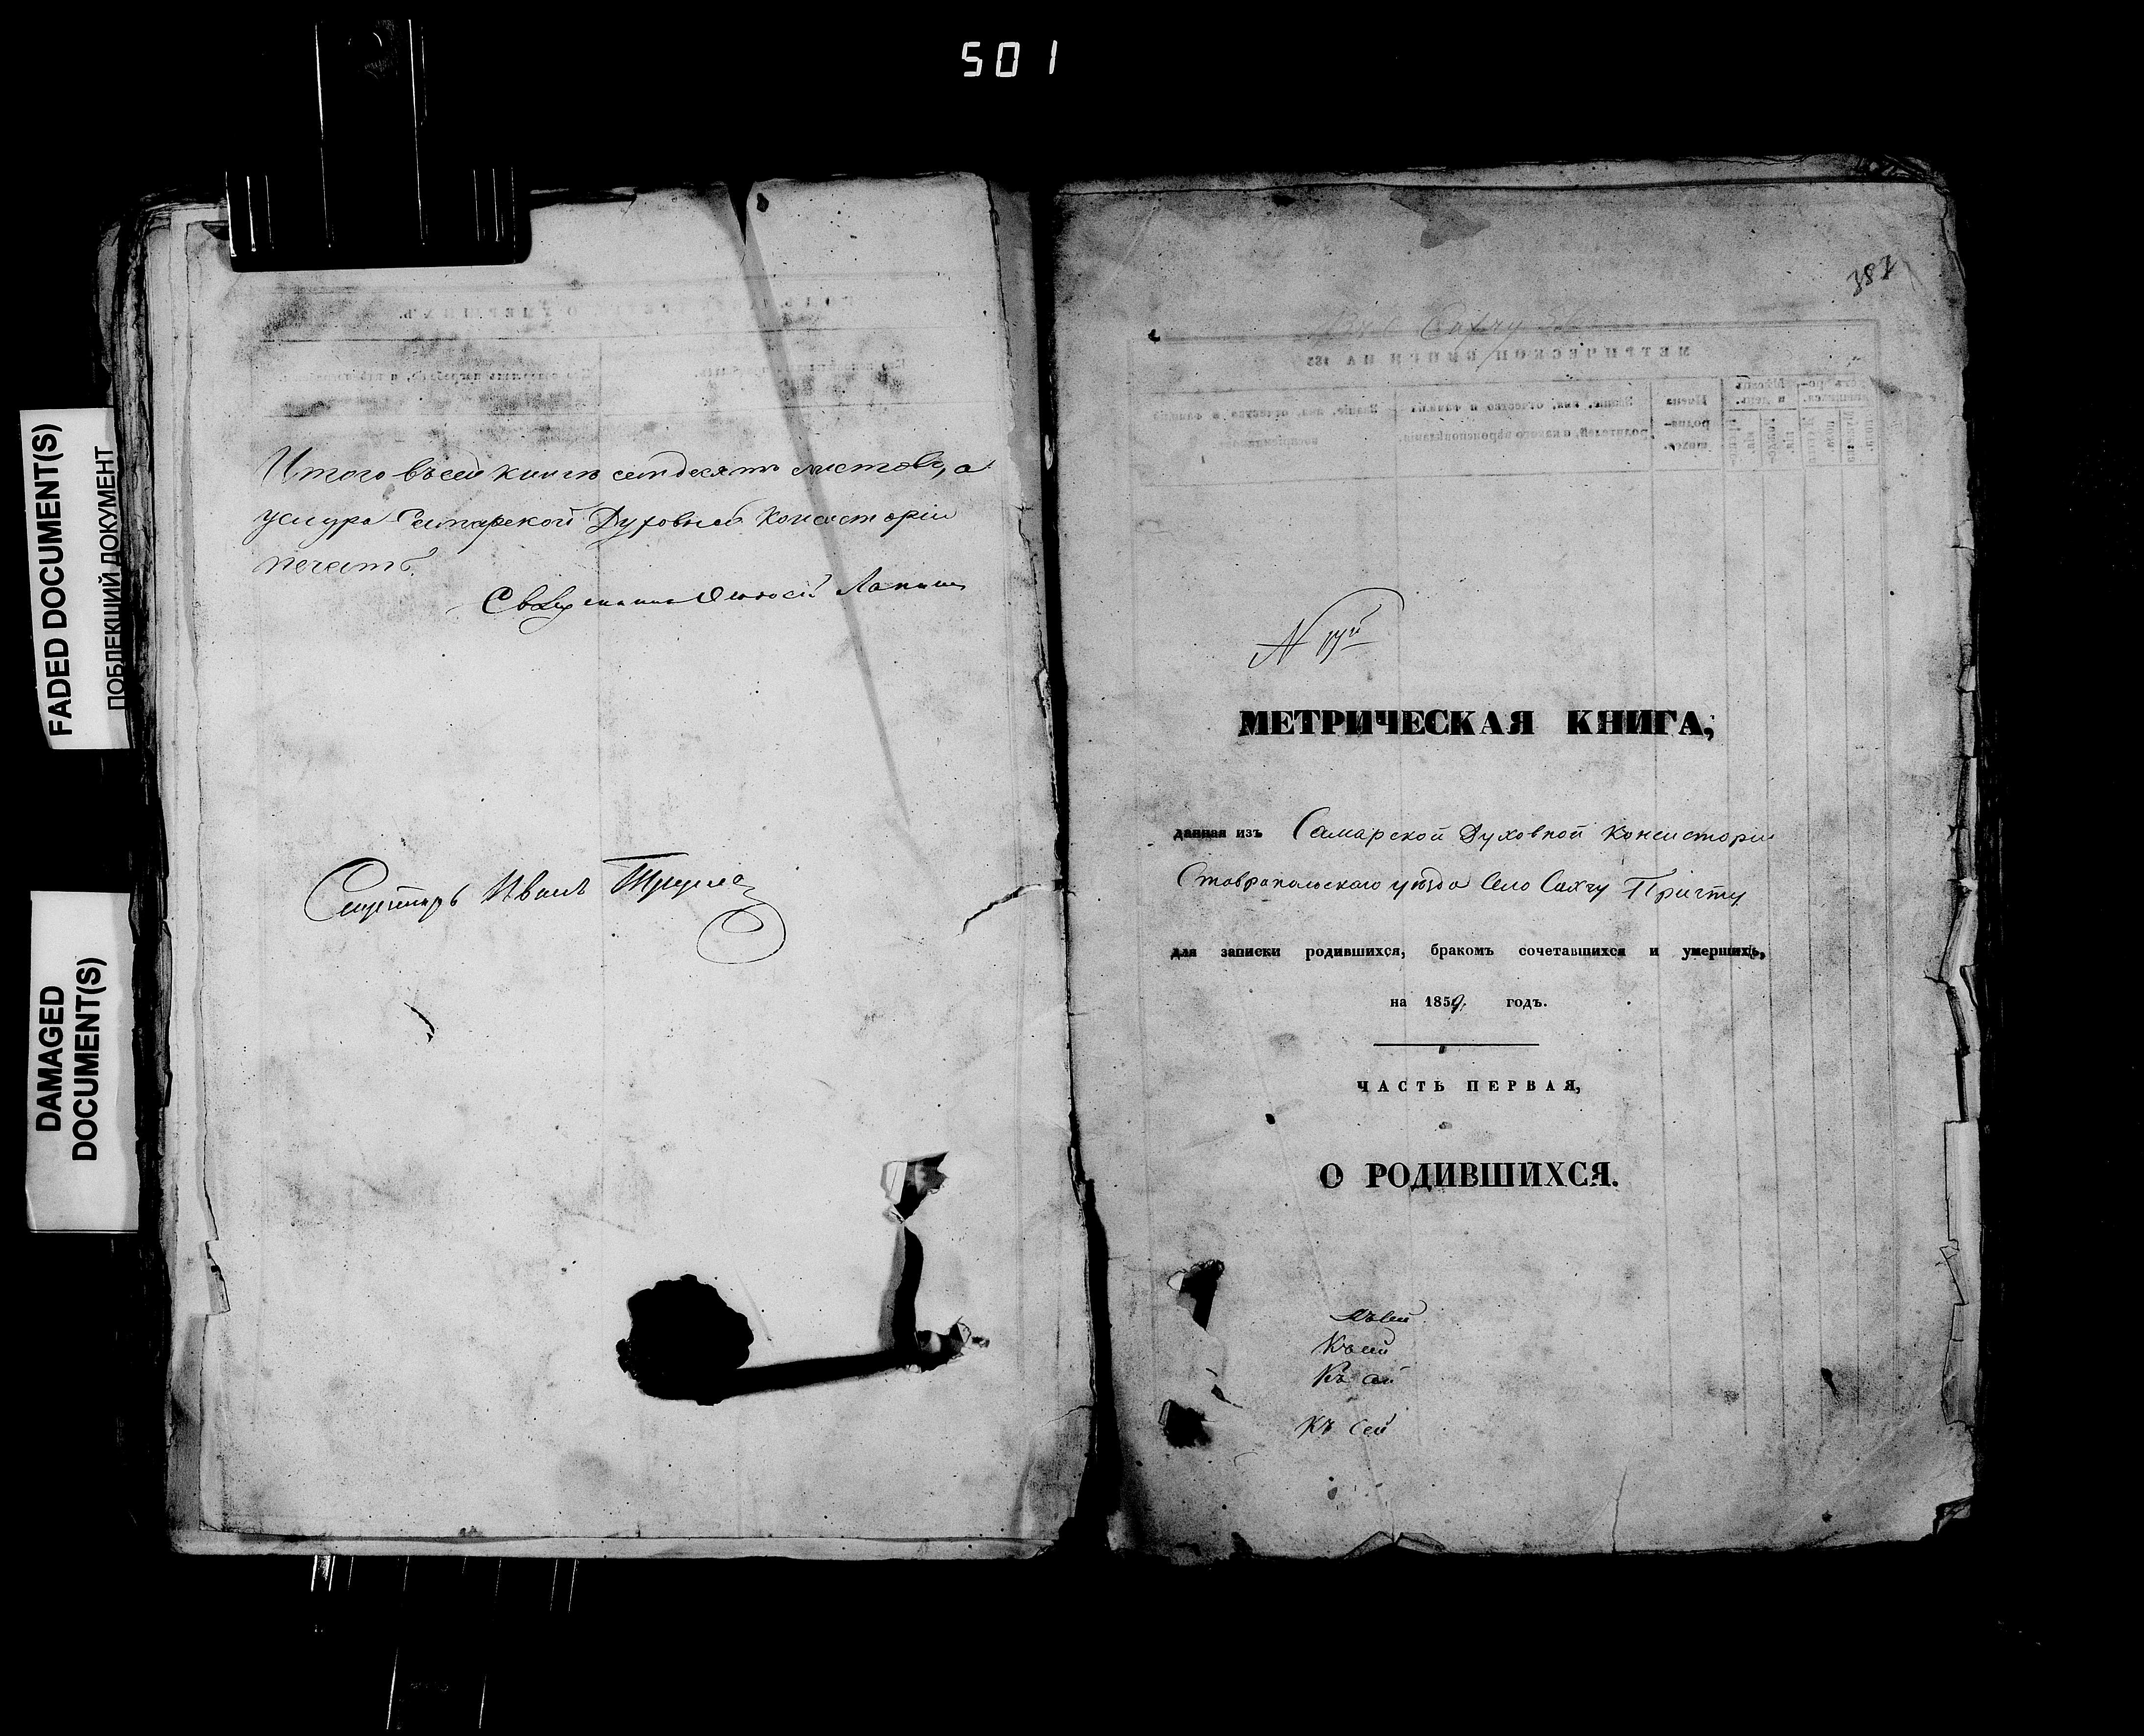 501
FADED DOCUMENT(S)
ПОБЛЕКШИЙ ДОКУМЕНТ
DAMAGED
DOCUMENT(S)
Итого въ сей книгѣ семдесятъ листовъ, а
у снура Самарской Духовной Консисторіи
печать.
Секретарь Иванъ
387
МЕТРИЧЕСКАЯ КНИГА,
данная изъ Самарской Духовной Консисторіи
Ставропольскаго уѣзда Село Сахчу Причту
для записки родившихся, бракомъ сочетавшихся и умершихъ,
на 1859. годъ.
ЧАСТЬ ПЕРВАЯ,
О РОДИВШИХСЯ.
Къ сей
Къ сей
Къ сей
Къ сей